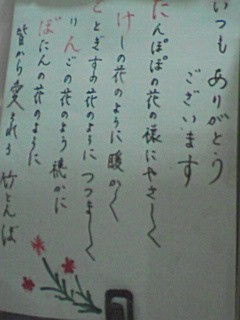 いつもありがとう
ございます
たんぽぽの花の様にやさしく
けしの花のように暖かく
とときすの花のようにつつましく
りんごの花のよう 穏かに
ぼたんの花のように
皆から愛される竹とんぼ